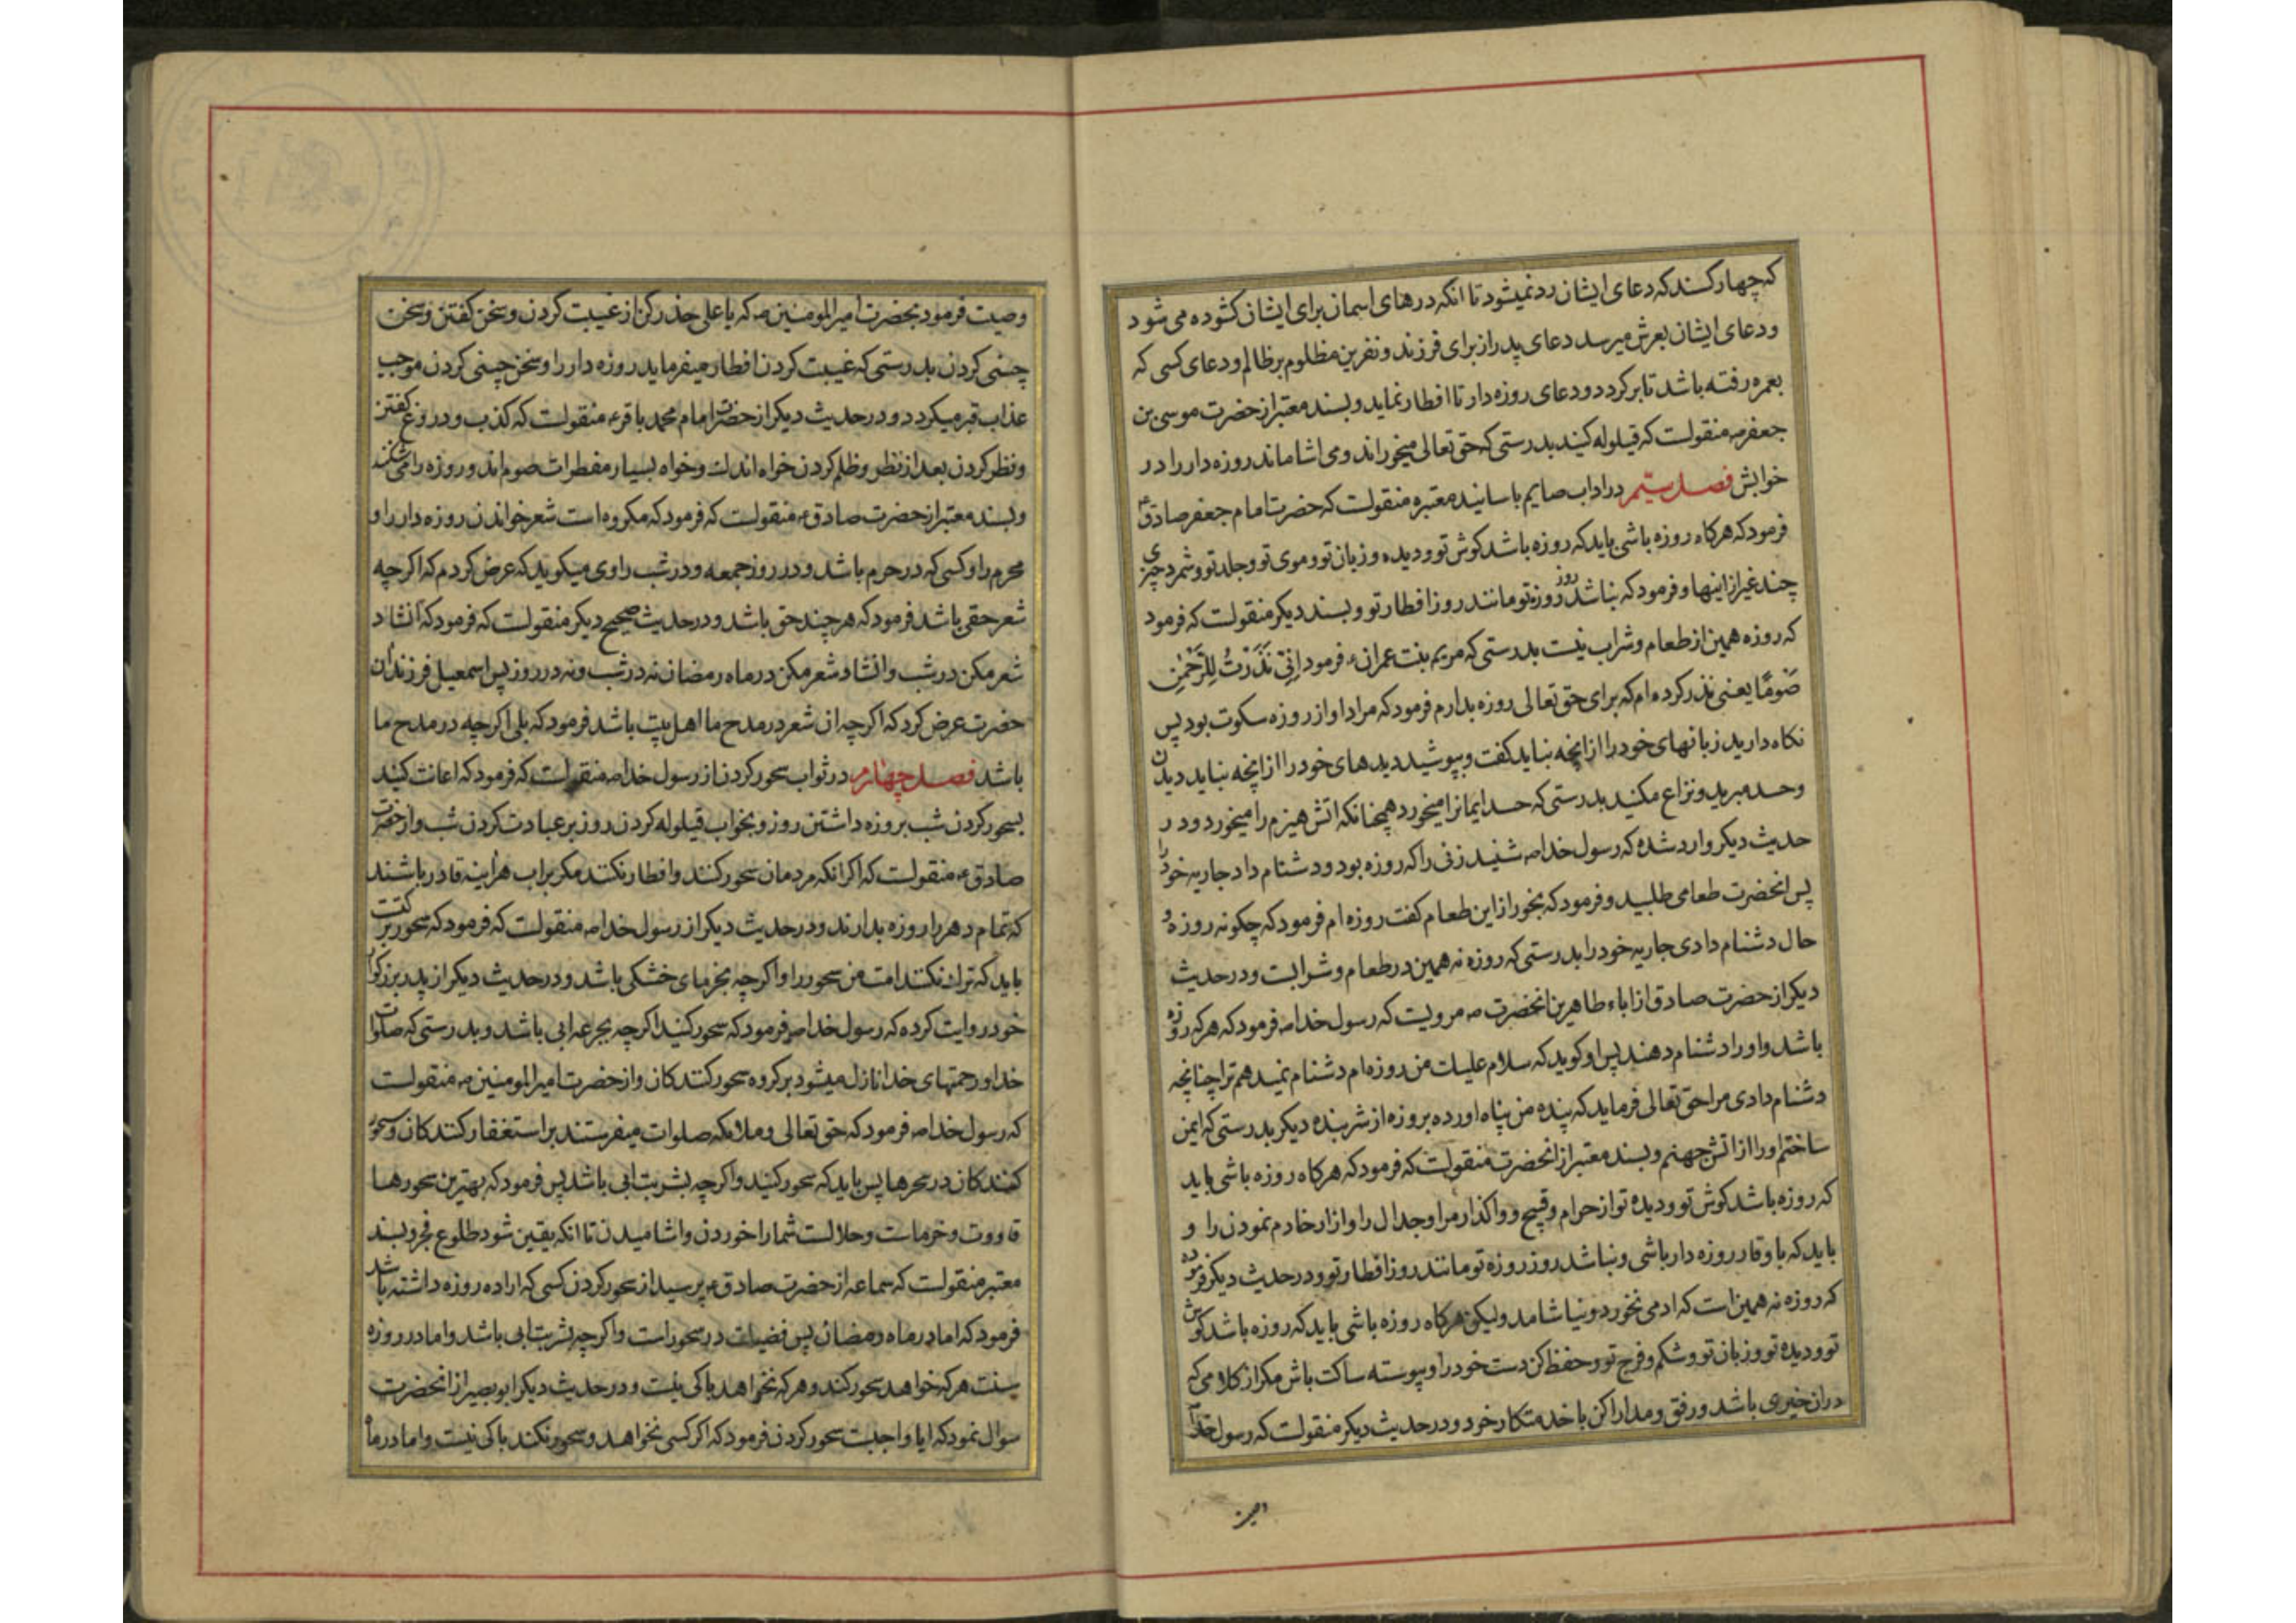 که چهار کسند که دعای ایشان رد نمیشود تا انکه درهای اسمان برای ایشان کشوده می شود
ودعای ایشان بعرش میرسد دعای پدر از برای فرزند و نفرین مظلوم بر ظالم و دعای کسی که
بعمره رفته باشد تا برکردد ودعای روزه دار تا افطار نماید وبسند معتبر از حضرت موسی بن
جعفر منقولست که قیلوله کنید بدرستی که حق تعالی میخوراند ومی اشاماند روزه دار را در
خوابش فصل سیّم در اداب صایم باسانید معتبره منقولست که حضرت امام جعفر صادق
فرمود که هرکاه روزه باشی باید که روزه باشد کوش تو ودیده وزبان تو وموی تو وجلد تو وشمرد چیزی
چند غیر از اینها وفرمود که نباشد روز روزه تو مانند روز افطار تو وبسند دیکر منقولست که فرمود
که روزه همین از طعام وشراب نیست بدرستی که مریم بنت عمران فرمود اِنّی نَذَرْتُ لِلرَّحْمٰنِ
صَوْمًا یعنی نذر کرده ام که برای حق تعالی روزه بدارم فرمود که مراد او از روزه سکوت بود پس
نکاه دارید زبانهای خود را از انچه نباید کفت وبپوشید دیدهای خود را از انچه نباید دیدن
وحسد مبرید ونزاع مکنید بدرستی که حسد ایمانرا میخورد همچنانکه اتش هیزم را میخورد ودر
حدیث دیکر وارد شده که رسول خدا شنید زنی را که روزه بود ودشنام داد جاریه خود را
پس انحضرت طعامی طلبید وفرمود که بخور از این طعام کفت روزه ام فرمود که چکونه روزه و
حال دشنام دادی جاریه خود را بدرستی که روزه نه همین در طعام وشرابست ودر حدیث
دیکر از حضرت صادق از اباء طاهرین انحضرت مرویست که رسول خدا فرمود که هر که روزه
باشد واورا دشنام دهند پس او کوید که سلام علیک من روزه ام دشنام نمیدهم ترا چنانچه
دشنام دادی مرا حق تعالی فرماید که بنده من پناه اورده بروزه از شر بنده دیکر بدرستی که ایمن
ساختم اورا از اتش جهنم وبسند معتبر از انحضرت منقولست که فرمود که هرکاه روزه باشی باید
که روزه باشد کوش تو ودیده تو از حرام وقبیح وواکذار مرا وجدال را وازار خادم نمودن را و
باید که باوقار روزه دار باشی ونباشد روز روزه تو مانند روز افطار تو ودر حدیث دیکر فرموده
که روزه نه همین است که ادمی نخورد ونیاشامد ولیکن هرکاه روزه باشی باید که روزه باشد کوش
تو ودیده تو وزبان تو وشکم وفرج تو وحفظ کن دست خود را وپیوسته ساکت باش مکر از کلامی که
در ان خیری باشد ورفق ومدارا کن با خدمتکار خود ودر حدیث دیکر منقولست که رسول خدا
وصیت فرمود بحضرت امیر المومنین که یا علی حذر کن از غیبت کردن وسخن کفتن وسخن
چینی کردن بدرستی که غیبت کردن افطار میفرماید روزه دار را وسخن چینی کردن موجب
عذاب قبر میکردد ودر حدیث دیکر از حضرت امام محمد باقر منقولست که کذب ودروغ کفتن
ونظر کردن بعد از نظر وظلم کردن خواه اندك وخواه بسیار مفطرات صوم اند وروزه را می شکنند
وبسند معتبر از حضرت صادق منقولست که فرمود که مکروه است شعر خواندن روزه دار را و
محرم را وکسی که در حرم باشد ودر روز جمعه ودر شب راوی میکوید که عرض کردم که اکرچه
شعر حقی باشد فرمود که هر چند حق باشد ودر حدیث صحیح دیکر منقولست که فرمود که انشاد
شعر مکن در شب وانشاد شعر مکن در ماه رمضان نه در شب ونه در روز پس اسمعیل فرزند ان
حضرت عرض کرد که اکرچه ان شعر در مدح ما اهل بیت باشد فرمود که بلی اکرچه در مدح ما
باشد فصل چهارم در ثواب سحور کردن از رسول خدا منقولست که فرمود که اعانت کنید
بسحور کردن شب بروزه داشتن روز وبخواب قیلوله کردن روز بر عبادت کردن شب واز حضرت
صادق منقولست که اکر انکه مردمان سحور کنند وافطار نکنند مکر براب هراینه قادر باشند
که تمام دهر را روزه بدارند ودر حدیث دیکر از رسول خدا منقولست که فرمود که سحور برکتست
باید که ترك نکنند امت من سحور را واکرچه بخرمای خشکی باشد ودر حدیث دیکر از پدر بزرکوار
خود روایت کرده که رسول خدا فرمود که سحور کنید اکرچه بجرعه ابی باشد وبدرستی که صلوات
خدا ورحمتهای خدا نازل میشود بر کروه سحور کنندکان واز حضرت امیر المومنین منقولست
که رسول خدا فرمود که حق تعالی وملائکه صلوات میفرستند بر استغفار کنندکان وسحور
کنندکان در سحرها پس باید که سحور کنید واکرچه بشربت ابی باشد پس فرمود که بهترین سحورها
قاووت وخرماست وحلالست شما را خوردن واشامیدن تا انکه یقین شود طلوع فجر وبسند
معتبر منقولست که سماعه از حضرت صادق پرسید از سحور کردن کسی که اراده روزه داشته باشد
فرمود که اما در ماه رمضان پس فضیلت در سحور است واکرچه بشربت ابی باشد واما در روزه
سنت هر که خواهد سحور کند وهر که نخواهد باکی نیست ودر حدیث دیکر ابوبصیر از انحضرت
سوال نمود که ایا واجبست سحور کردن فرمود که اکر کسی نخواهد وسحور نکند باکی نیست واما در ماه